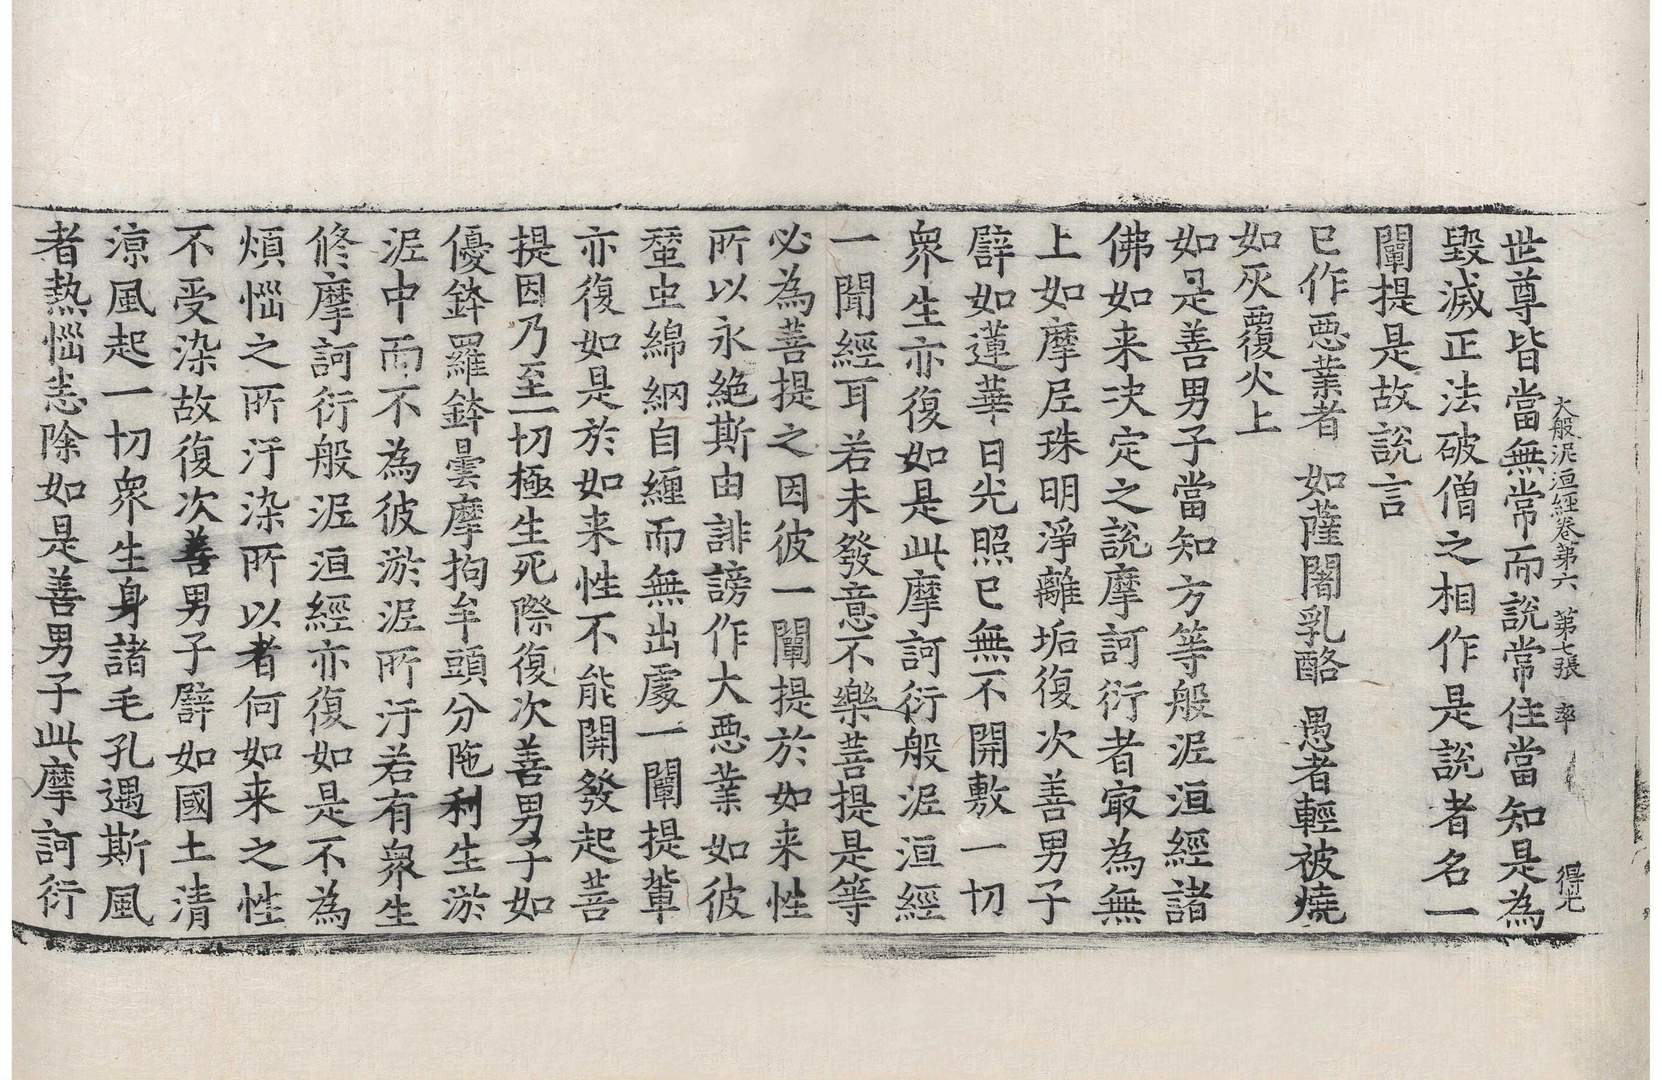 大般泥洹經卷第六 第七張 率 得光
世尊皆當無常而說常住當知是為
毀滅正法破僧之相作是說者名一
闡提是故說言
已作惡業者 如薩闍乳酪 愚者輕被燒
如灰覆火上
如是善男子當知方等般泥洹經諸
佛如来決定之說摩訶衍者㝡為無
上如摩尼珠明淨離垢復次善男子
譬如蓮華日光照已無不開敷一切
衆生亦復如是此摩訶衍般泥洹經
一聞經耳若未發意不樂菩提是等
必為菩提之因彼一闡提於如来性
所以永絕斯由誹謗作大惡業如彼
蝅虫綿網自纏而無出處一闡提輩
亦復如是於如来性不能開發起菩
提因乃至一切極生死際復次善男子如
優鉢羅鉢曇摩拘牟頭分陁利生淤
泥中而不為彼淤泥所汙若有衆生
修摩訶衍般泥洹經亦復如是不為
煩惱之所汙染所以者何如来之性
不受染故復次善男子譬如國土清
涼風起一切衆生身諸毛孔遇斯風
者熱惱恚除如是善男子此摩訶衍